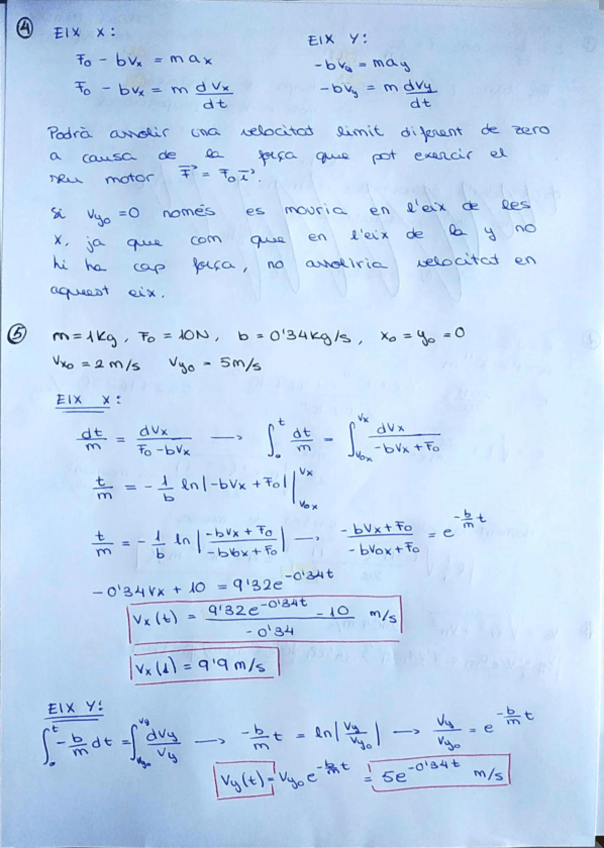 ④ EIX X: EIX Y:
F₀ - bvₓ = m aₓ -bv_y = ma_y
F₀ - bvₓ = m dvₓ/dt -bv_y = m dv_y/dt
Podrà assolir una velocitat límit diferent de zero
a causa de la força que pot exercir el
seu motor F⃗ = F₀ i⃗.
Si v_y₀ = 0 només es mouria en l'eix de les
x, ja que com que en l'eix de la y no
hi ha cap força, no assoliria velocitat en
aquest eix.
⑤ m = 1 kg, F₀ = 10N, b = 0'34 kg/s, x₀ = y₀ = 0
vₓ₀ = 2 m/s v_y₀ = 5 m/s
EIX X:
dt/m = dvₓ/(F₀ - bvₓ) → ∫₀^t dt/m = ∫_{v₀ₓ}^{vₓ} dvₓ/(-bvₓ + F₀)
t/m = - 1/b ln|-bvₓ + F₀| |_{v₀ₓ}^{vₓ}
t/m = - 1/b ln |(-bvₓ + F₀)/(-bv₀ₓ + F₀)| → (-bvₓ + F₀)/(-bv₀ₓ + F₀) = e^{-b/m t}
-0'34vₓ + 10 = 9'32e^{-0'34t}
vₓ(t) = (9'32e^{-0'34t} - 10)/(-0'34) m/s
vₓ(1) = 9'9 m/s
EIX Y:
∫₀^t - b/m dt = ∫_{v_y₀}^{v_y} dv_y/v_y → -b/m t = ln|v_y/v_y₀| → v_y/v_y₀ = e^{-b/m t}
v_y(t) = v_y₀ e^{-b/m t} = 5e^{-0'34t} m/s